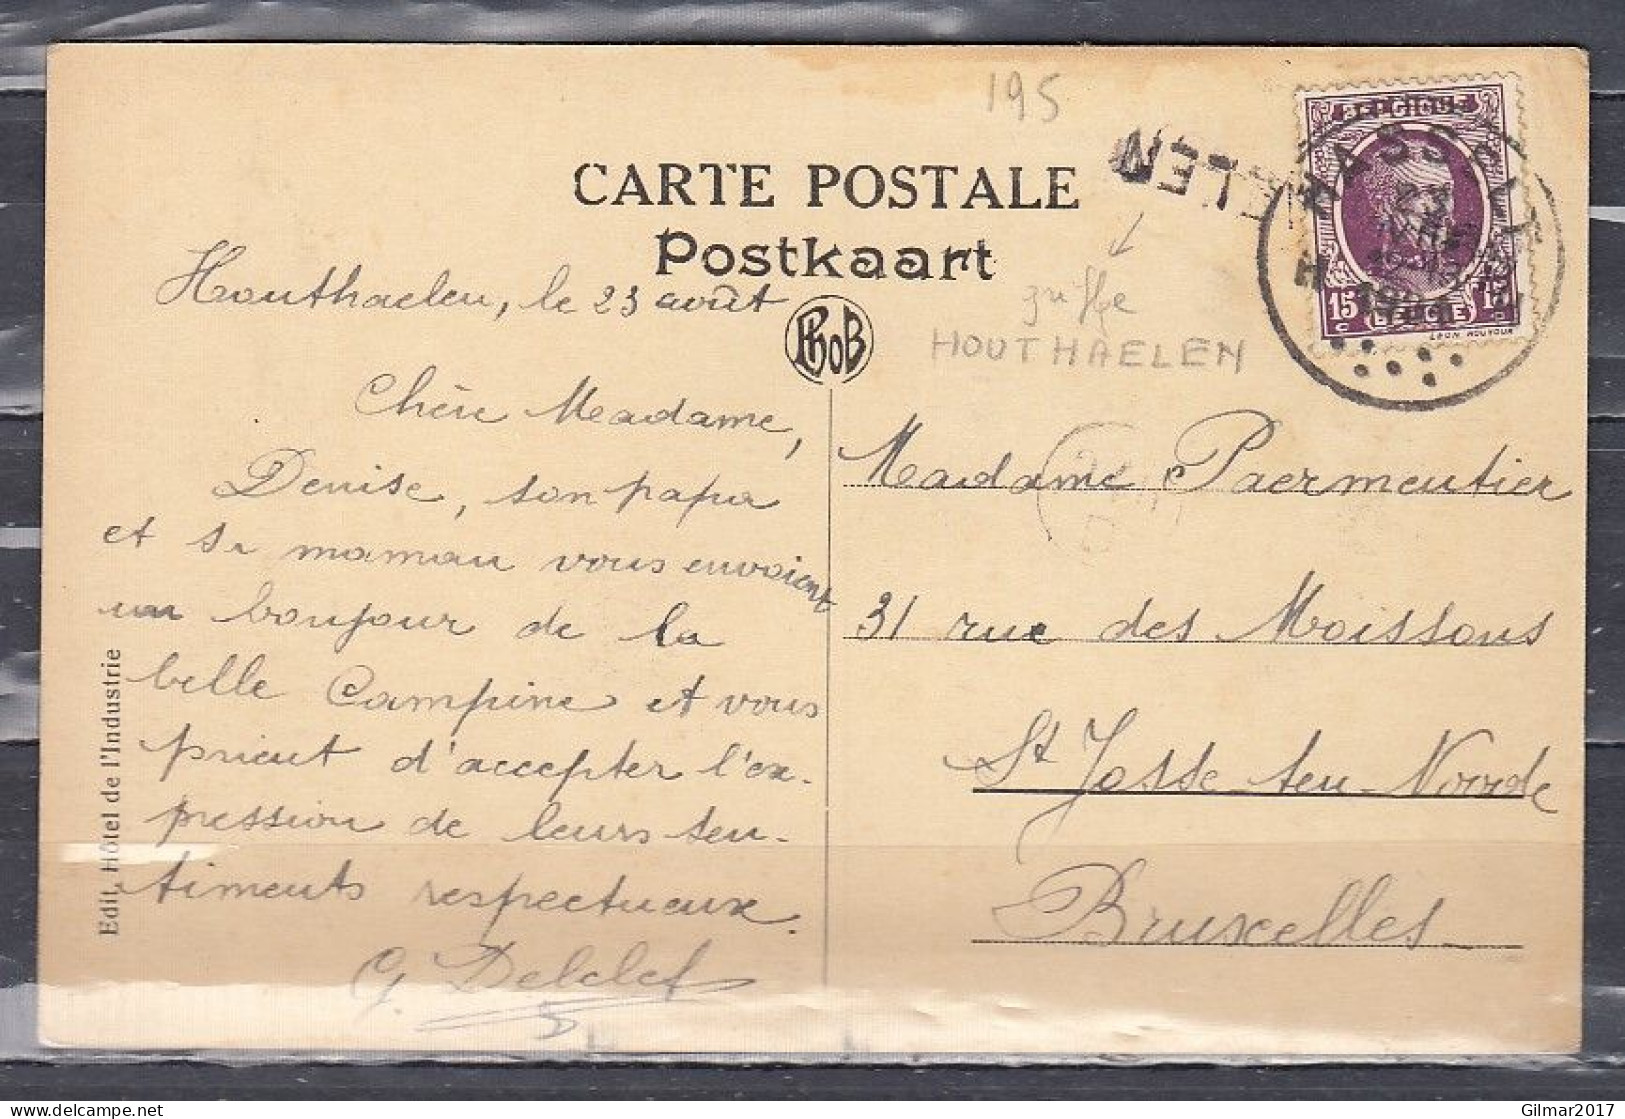 195
CARTE POSTALE
Postkaart
ELEN
griffe
HOUTHAELEN
PhoB
BELGIQUE
15 BELGIË 15
HASSELT
23
Houthaelen, le 23 août
Chère Madame,
Denise, son papa
et sa maman vous envoient
un bonjour de la
belle Campine et vous
prient d'accepter l'ex-
pression de leurs sen-
timents respectueux.
G. Delclef
Edit. Hôtel de l'Industrie
Madame Paermentier
31 rue des Moissons
St Josse-ten-Noode
Bruxelles
Gilmar2017